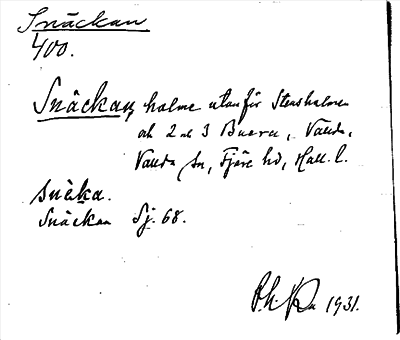 Snäckan
400.
Snäckan, holme utanför Stensholmen
ok 2 ok 3 Buera, Vallda,
Vallda sn, Fjäre hd, Hall. l.
snèka.
Snäckan Sj. 68.
1931.